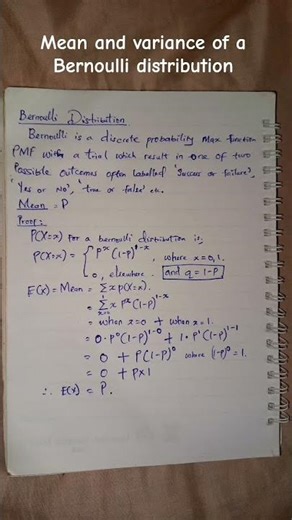 Mean and variance of a
Bernoulli distribution
Bernoulli Distribution
Bernoulli is a discrete probability Max function
PMF with a trial which result in one of two
Possible outcomes often labelled 'Success or failure',
'Yes or No', 'true or false' etc.
Mean = P
Proof:
P(X=x) for a bernoulli distribution is,
P(X=x) = { P^x (1-P)^{1-x} where x=0,1
0, elsewhere. and q = 1-P
E(x) = Mean = Σ x P(X=x).
= Σ_{x=0}^{1} x P^x (1-P)^{1-x}
= when x=0 + when x=1.
= 0·P^0 (1-P)^{1-0} + 1·P^1 (1-P)^{1-1}
= 0 + P(1-P)^0 where (1-P)^0 = 1.
= 0 + P×1
∴ E(x) = P.